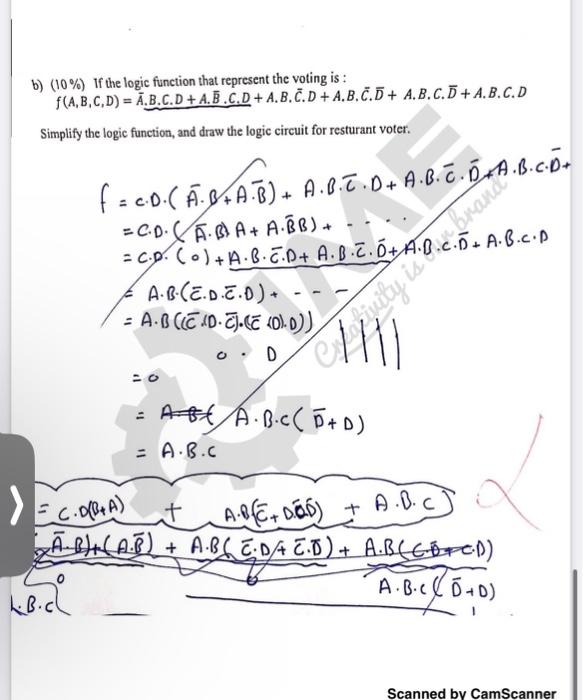 b) (10%) If the logic function that represent the voting is :
f(A,B,C,D) = A̅.B.C.D + A.B̅.C.D + A.B.C̅.D + A.B.C̅.D̅ + A.B.C.D̅ + A.B.C.D
Simplify the logic function, and draw the logic circuit for resturant voter.
f = C.D.( A̅.B + A.B̅) + A.B.C̅.D + A.B.C̅.D̅ + A.B.C.D̅+
= C.D.( A̅.B) A + A.B̅B) + - - - -
= C.D. (0) + A.B.C̅.D + A.B.C̅.D̅ + A.B.C.D̅ + A.B.C.D
= A.B.(C̅.D.C̅.D) + - - -
= A.B
0 . D
= 0
= A.B.C( D̅+D)
= A.B.C
= C.D(B+A) + + A.B.C
A̅.B)+(A.B̅) + A.B( C̅.D + C̅.D̅) + A.B(
0
A.B.C( D̅+D)
.B.C
1
IME
Creativity is our brand
Scanned by CamScanner